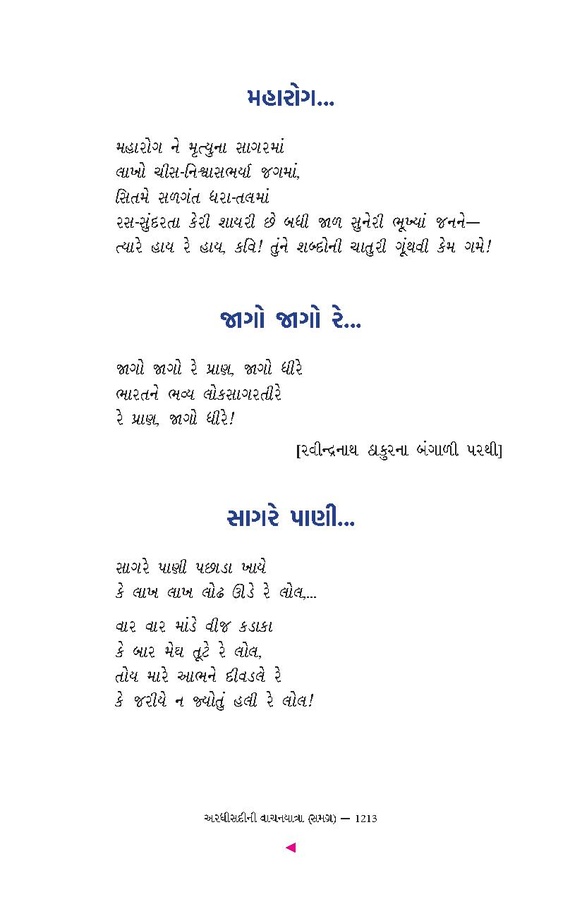 મહારોગ...
મહારોગ ને મૃત્યુના સાગરમાં
લાખો ચીસ-નિશ્વાસભર્યા જગમાં,
સિતમે સળગંત ધરા-તલમાં
રસ-સુંદરતા કેરી શાયરી છે બધી જાળ સુનેરી ભૂખ્યાં જનને—
ત્યારે હાય રે હાય, કવિ! તુંને શબ્દોની ચાતુરી ગૂંથવી કેમ ગમે!
જાગો જાગો રે...
જાગો જાગો રે પ્રાણ, જાગો ધીરે
ભારતને ભવ્ય લોકસાગરતીરે
રે પ્રાણ, જાગો ધીરે!
[રવીન્દ્રનાથ ઠાકુરના બંગાળી પરથી]
સાગરે પાણી...
સાગરે પાણી પછાડા ખાયે
કે લાખ લાખ લોઢ ઊડે રે લોલ,...
વાર વાર માંડે વીજ કડાકા
કે બાર મેઘ તૂટે રે લોલ,
તોય મારે આભને દીવડલે રે
કે જરીયે ન જ્યોતું હલી રે લોલ!
અરધીસદીની વાચનયાત્રા (સમગ્ર) — 1213